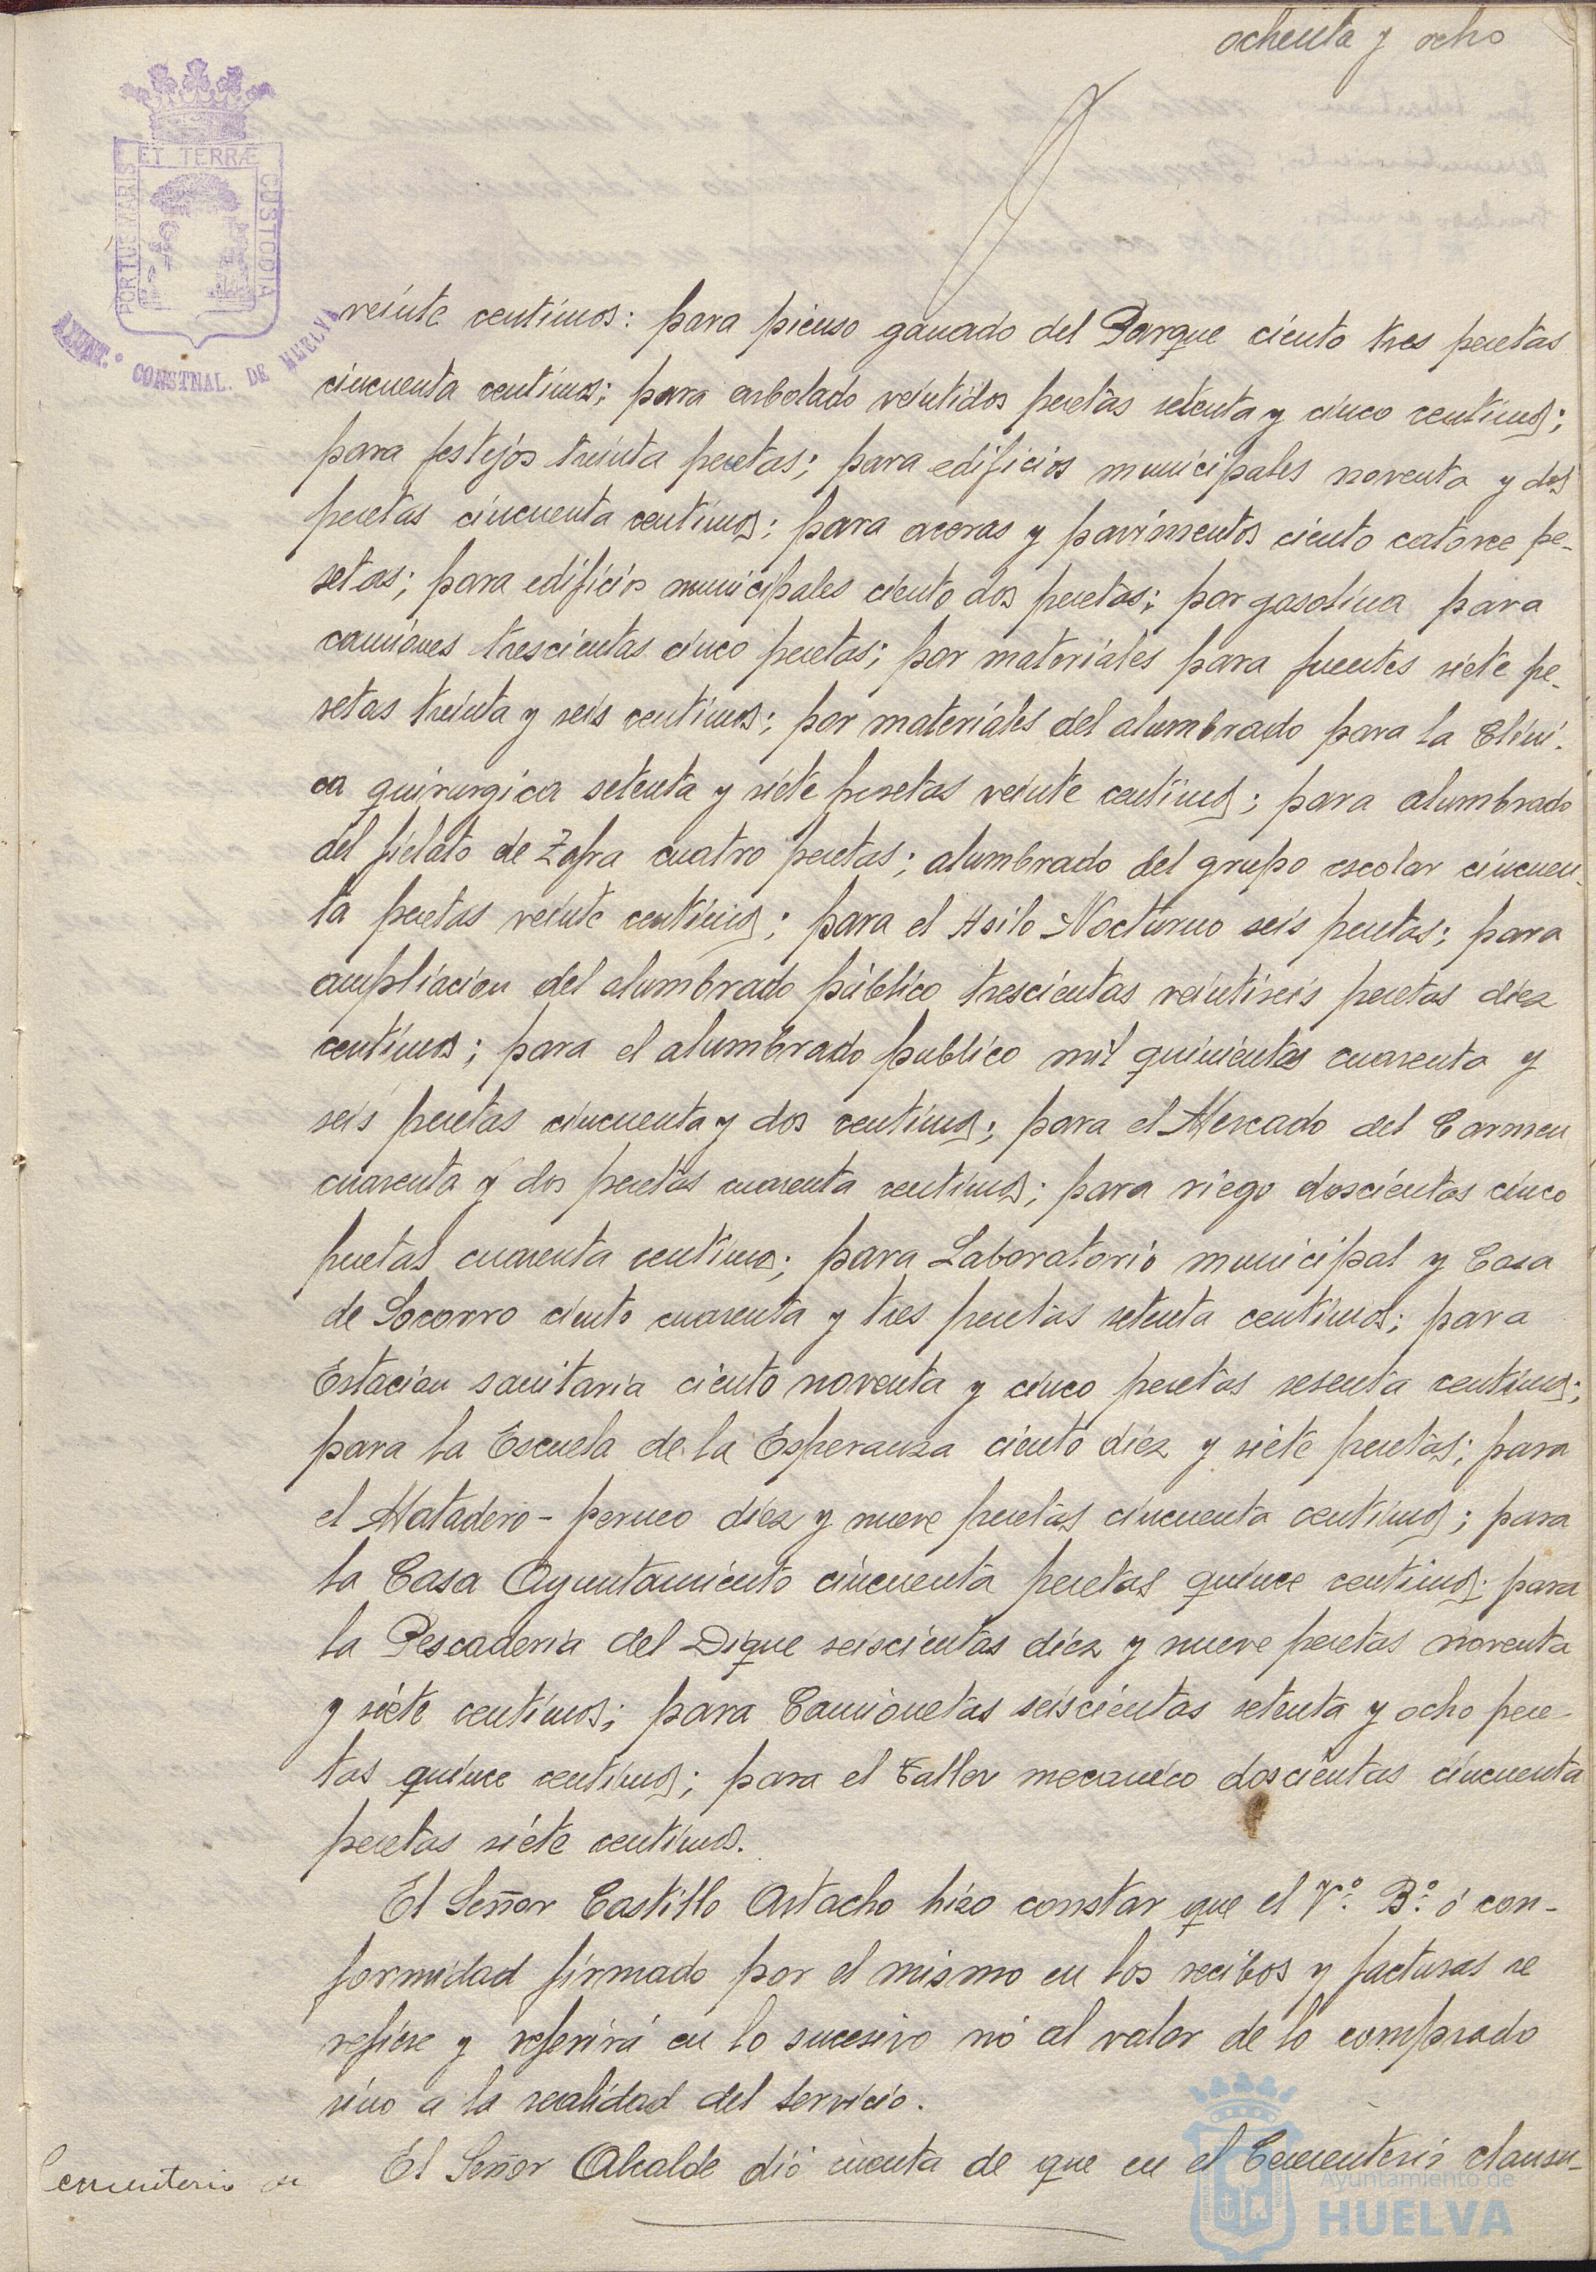 ochenta y ocho
PORTUS MARIS ET TERRÆ CUSTODIA
AYUNT.º CONSTNAL. DE HUELVA
veinte centimos: para pienso ganado del Parque ciento tres pesetas
cincuenta centimos; para arbolado veintidos pesetas setenta y cinco centimos;
para festejos treinta pesetas; para edificios municipales noventa y dos
pesetas cincuenta centimos; para aceras y pavimentos ciento catorce pe-
setas; para edificios municipales ciento dos pesetas; por gasolina para
camiones trescientas cinco pesetas; por materiales para fuentes siete pe-
setas treinta y seis centimos; por materiales del alumbrado para la Clini-
ca quirurgica setenta y siete pesetas veinte centimos; para alumbrado
del fielato de Zafra cuatro pesetas; alumbrado del grupo escolar cincuen-
ta pesetas veinte centimos; para el Asilo Nocturno seis pesetas; para
ampliacion del alumbrado público trescientas veintiseis pesetas diez
centimos; para el alumbrado publico mil quinientas cuarenta y
seis pesetas cincuenta y dos centimos; para el Mercado del Carmen
cuarenta y dos pesetas cuarenta centimos; para riego doscientas cinco
pesetas cuarenta centimos; para Laboratorio municipal y Casa
de Socorro ciento cuarenta y tres pesetas setenta centimos; para
Estacion sanitaria ciento noventa y cinco pesetas sesenta centimos;
para la Escuela de la Esperanza ciento diez y siete pesetas; para
el Matadero - perneo diez y nueve pesetas cincuenta centimos; para
la Casa Ayuntamiento cincuenta pesetas quince centimos; para
la Pescaderia del Dique seiscientas diez y nueve pesetas noventa
y siete centimos; para Camionetas seiscientas setenta y ocho pese-
tas quince centimos; para el Taller mecanico doscientas cincuenta
pesetas siete centimos.
El Señor Castillo Artacho hizo constar que el Vº. Bº. ó con-
formidad firmado por el mismo en los recibos y facturas se
refiere y referirá en lo sucesivo nó al valor de lo comprado
sino a la realidad del servicio.
Cementerio
El Señor Alcalde dió cuenta de que en el Cementerio clausu-
Ayuntamiento de
HUELVA